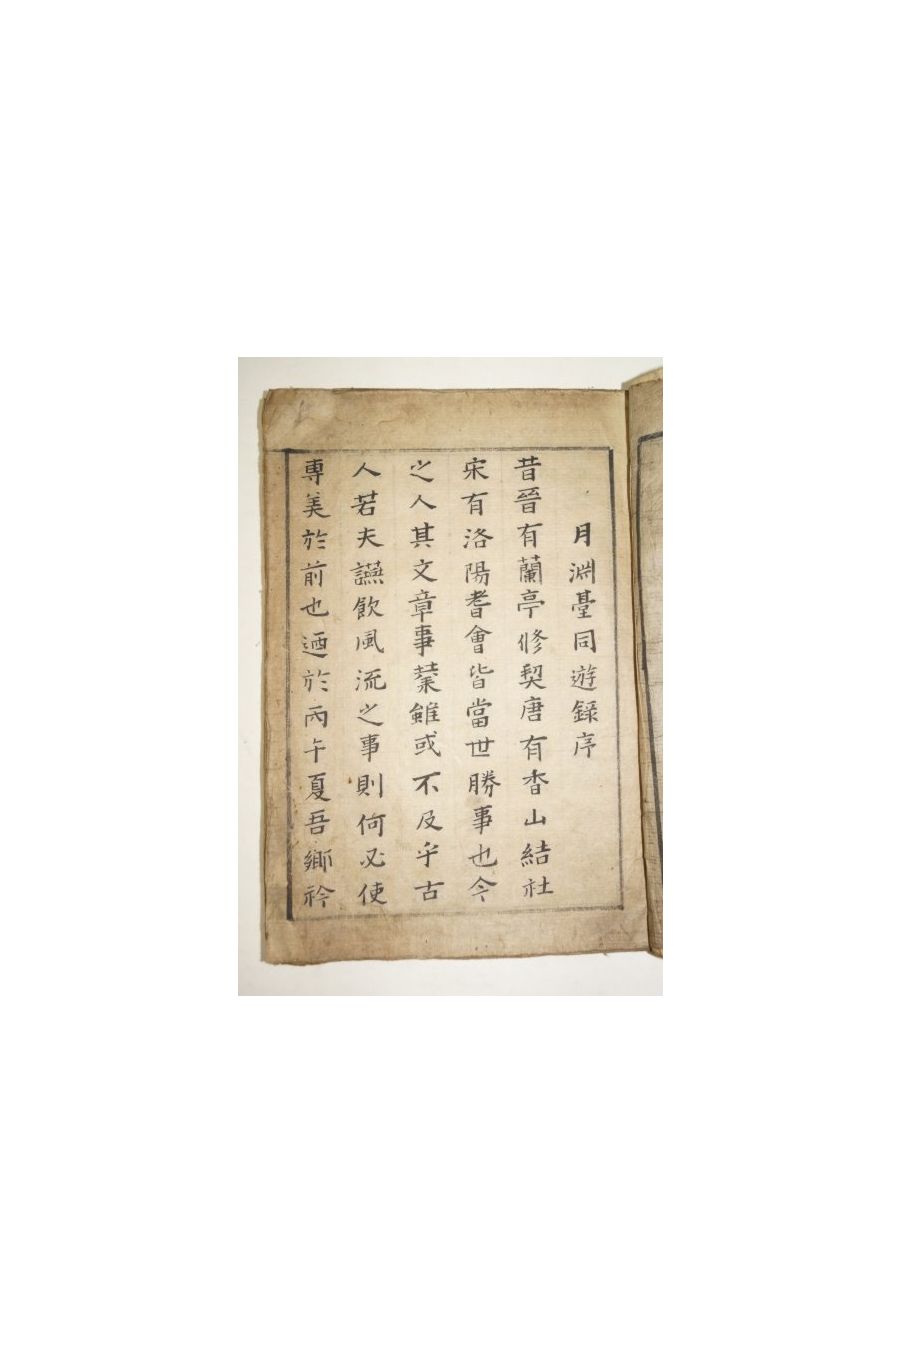 月淵臺同遊錄序
昔晉有蘭亭修契唐有香山結社
宋有洛陽耆會皆當世勝事也今
之人其文章事業雖或不及乎古
人若夫讌飮風流之事則何必使
專美於前也迺於丙午夏吾鄕衿